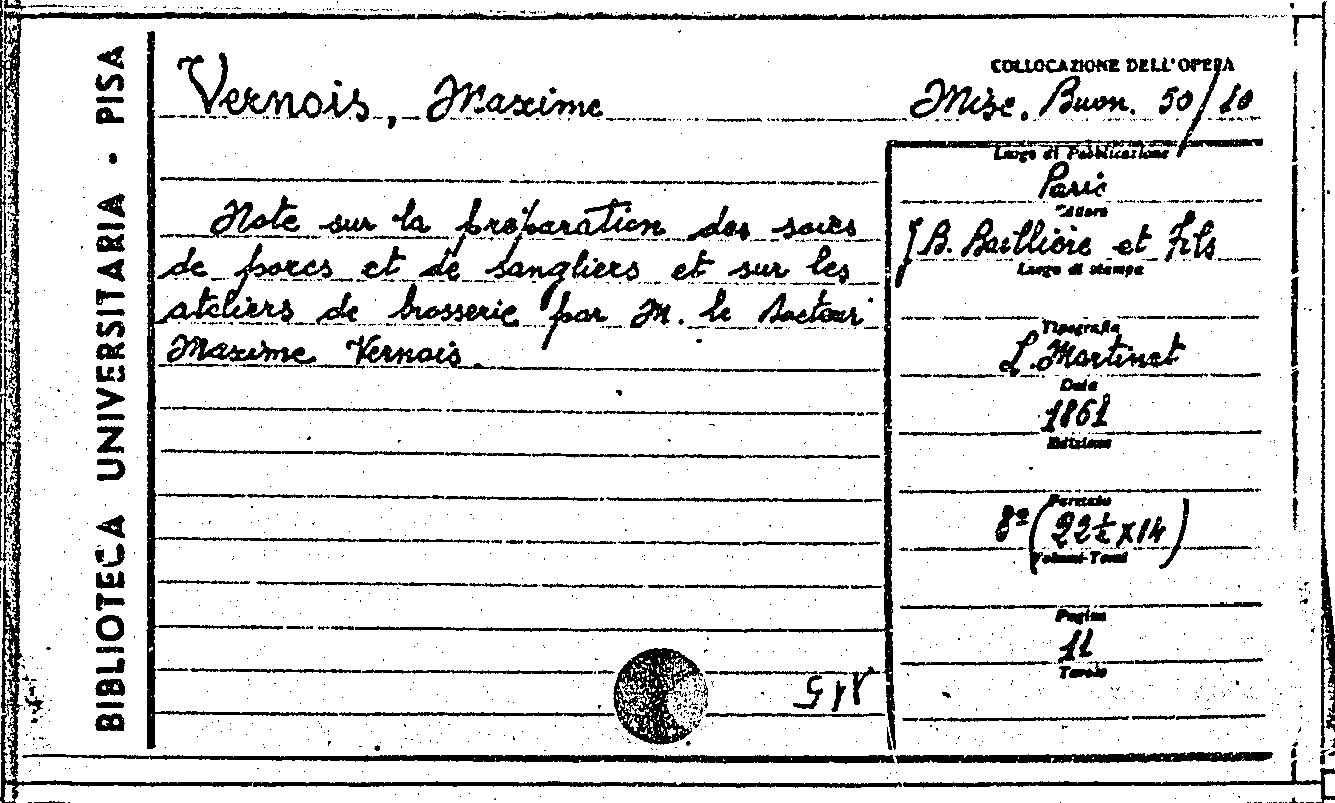 BIBLIOTECA UNIVERSITARIA · PISA
Vernois, Maxime
COLLOCAZIONE DELL'OPERA
Misc. Buon. 50/10
Note sur la préparation des soies
de porcs et de sangliers et sur les
ateliers de brosserie par M. le docteur
Maxime Vernois.
Luogo di Pubblicazione
Paris
Editore
J B. Baillière et Fils
Luogo di stampa
Tipografia
L. Martinet
Data
1861
Edizione
Formato
8º (22½ x 14)
Volumi-Tomi
Pagine
11
Tavole